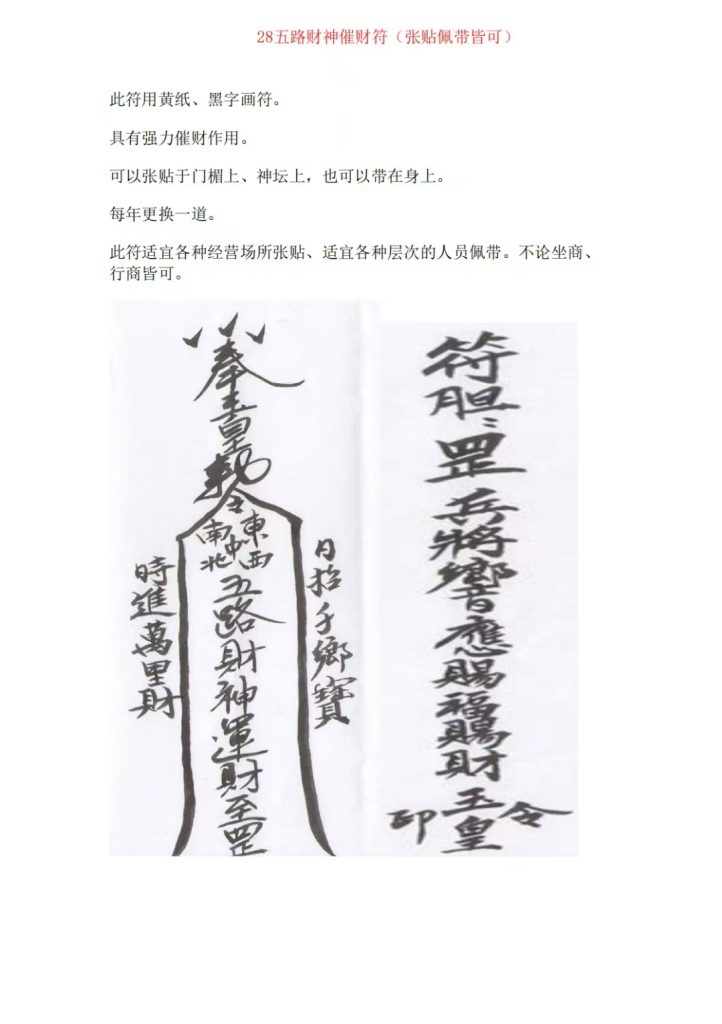 28五路财神催财符（张贴佩带皆可）
此符用黄纸、黑字画符。
具有强力催财作用。
可以张贴于门楣上、神坛上，也可以带在身上。
每年更换一道。
此符适宜各种经营场所张贴、适宜各种层次的人员佩带。不论坐商、
行商皆可。
奉玉皇勅令
東西中南北
五路財神運財至罡
日招千鄉寶
時進萬里財
符胆：罡兵將響應賜福賜財
玉皇
令
印